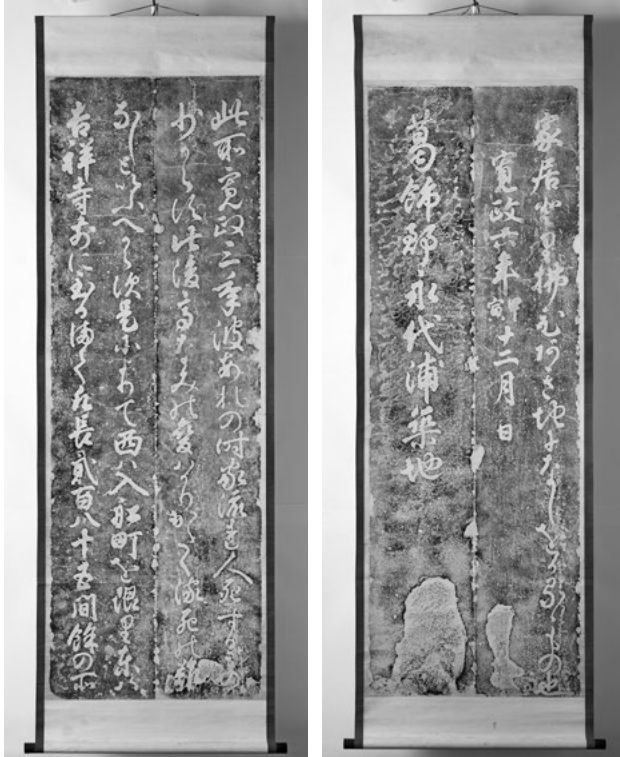 此所寛政三年波あれの時家流れ人死するもの
少からす此後高なみの變はかりかたく流死の難
なしといふへからす是によりて西は入船町を限り東は
吉祥寺前に至るまて凡長貳百八十五間餘の所
家居取り拂ひあき地になしをかるゝもの也
寛政六年甲寅十二月日
葛飾郡永代浦築地